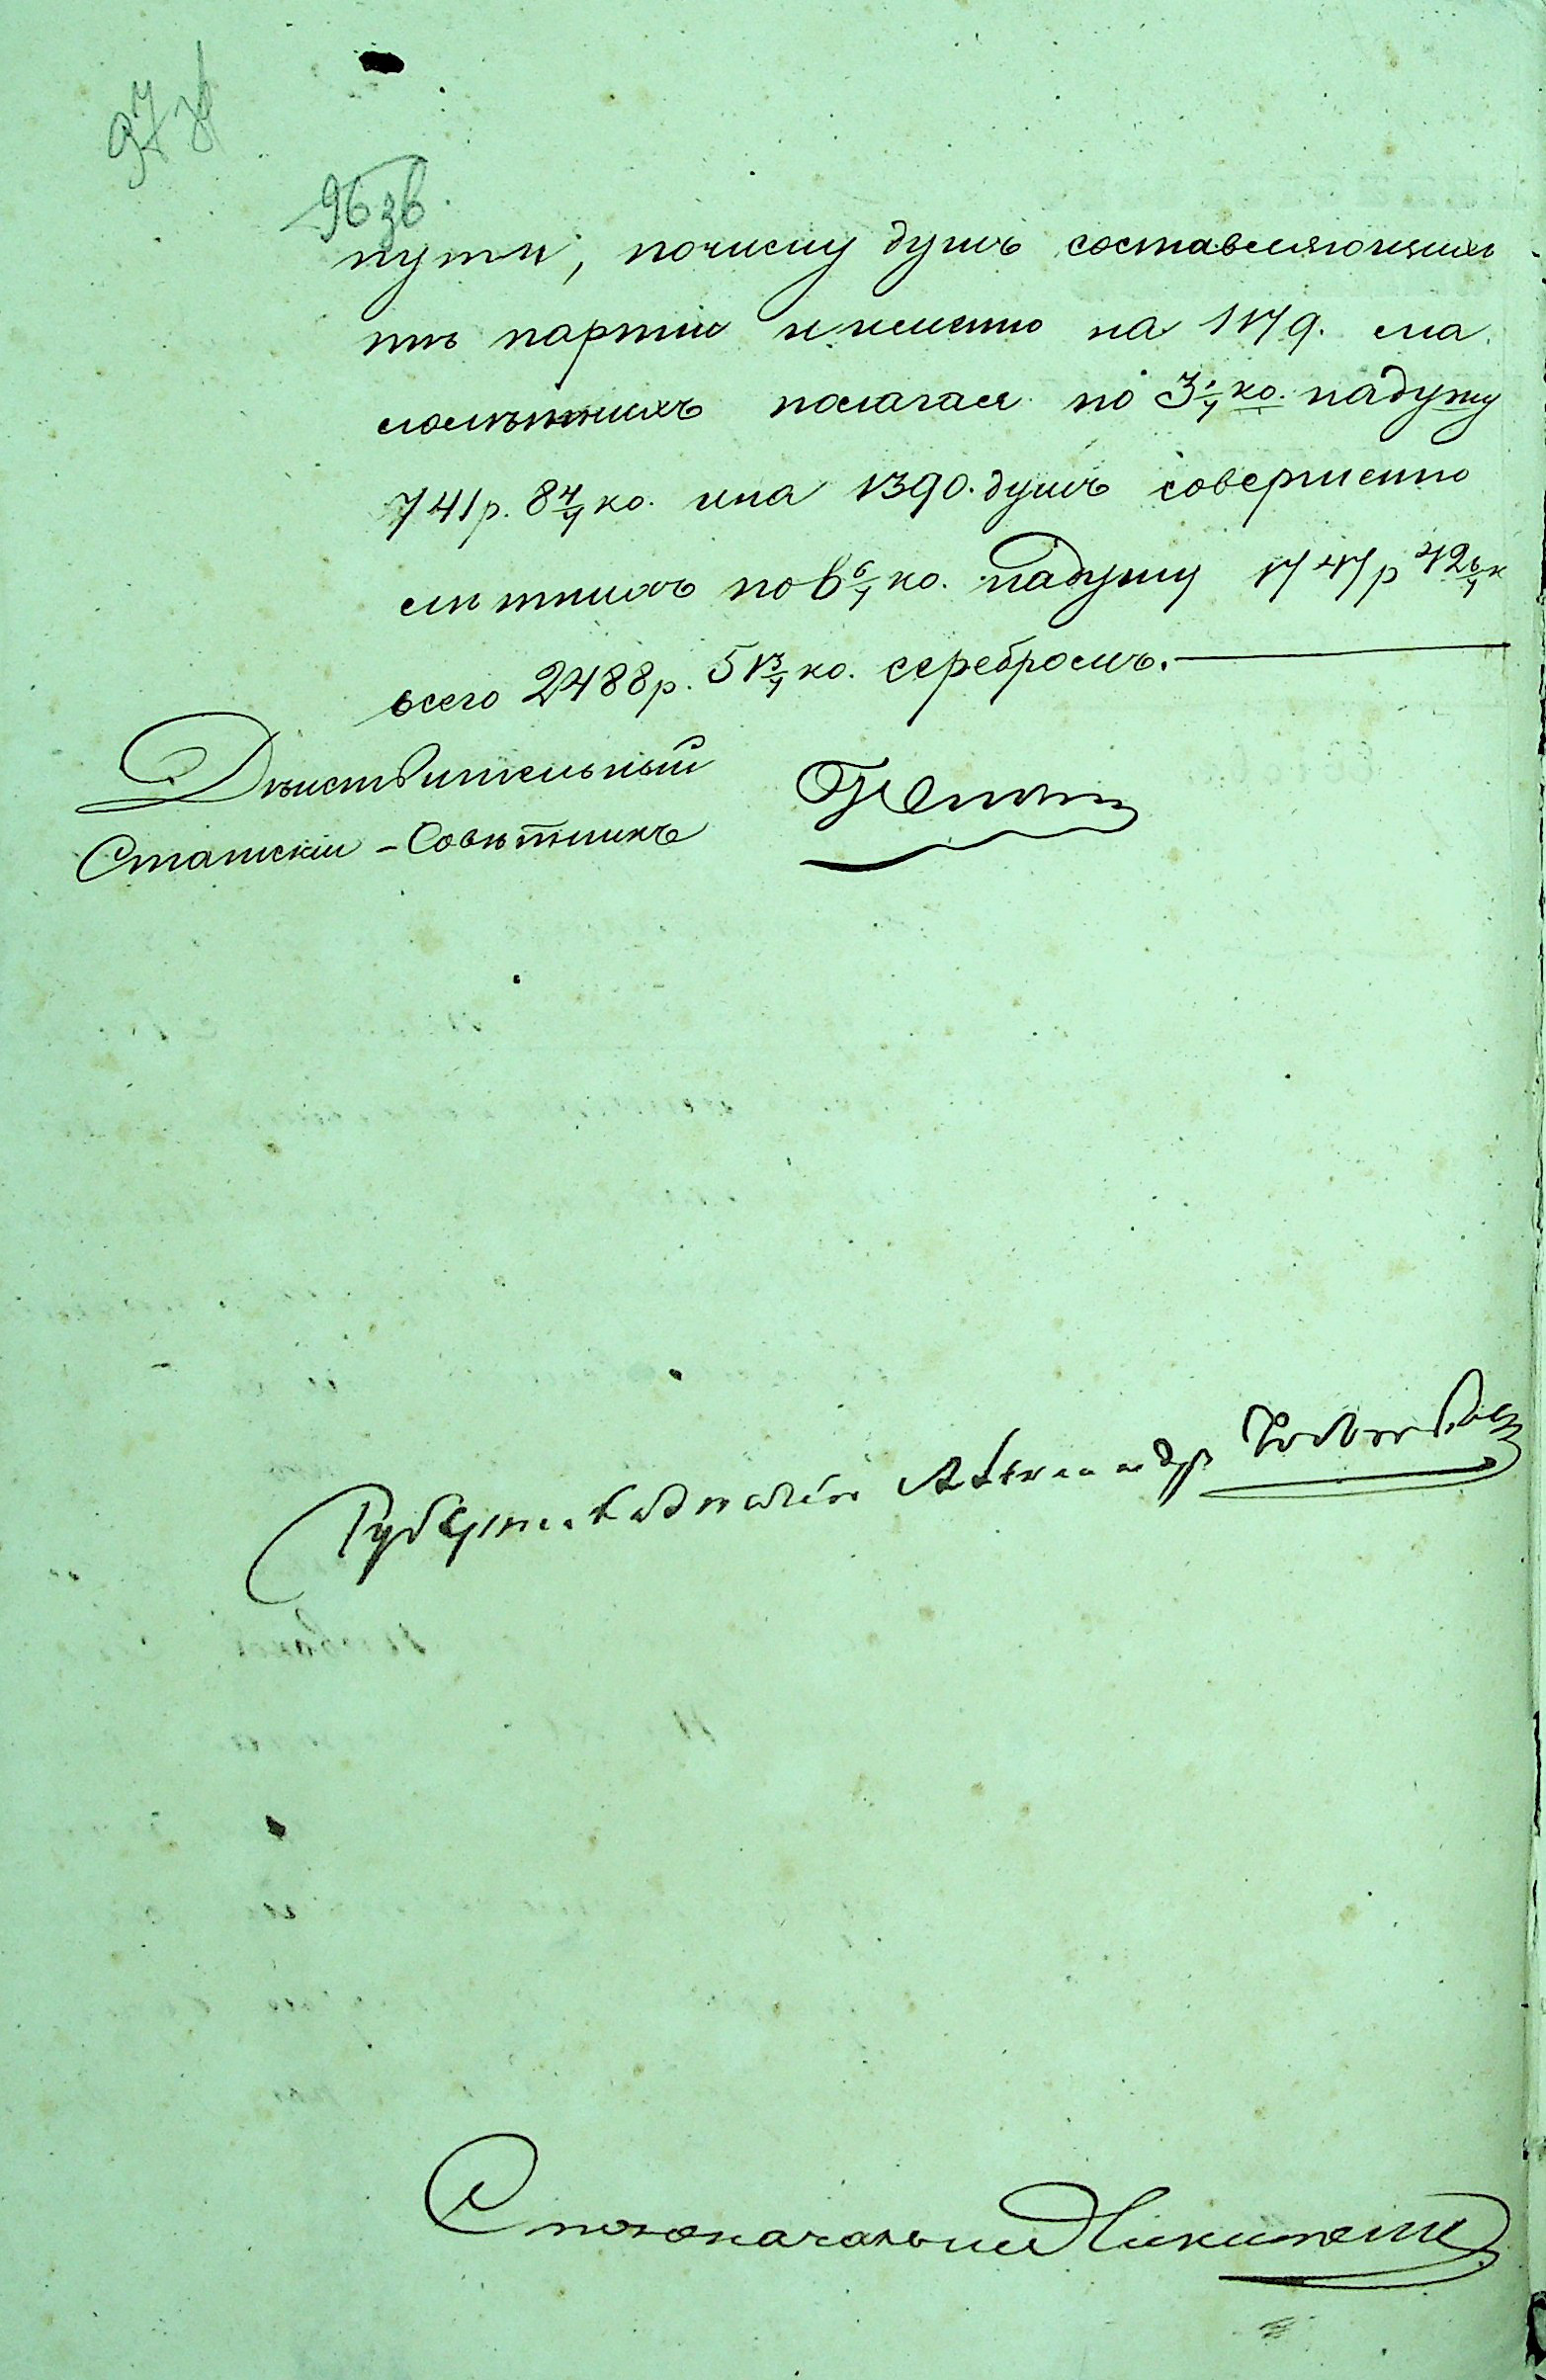 97 зв
96 зв.
пути, почислу душъ составляющихъ
тѣ партiи иименно на 1179. ма
лолѣтнихъ полагая по 3 1/7 ко. надушу
741 р. 8 4/7 ко. ина 1390. душъ совершенно
лѣтнихъ по 6 6/7 ко. надушу 1747 р 42 6/7 к
всего 2488 р. 51 3/7 ко. серебромъ.
Дѣйствительный
Статскiй - Совѣтникъ
Столоначальникъ